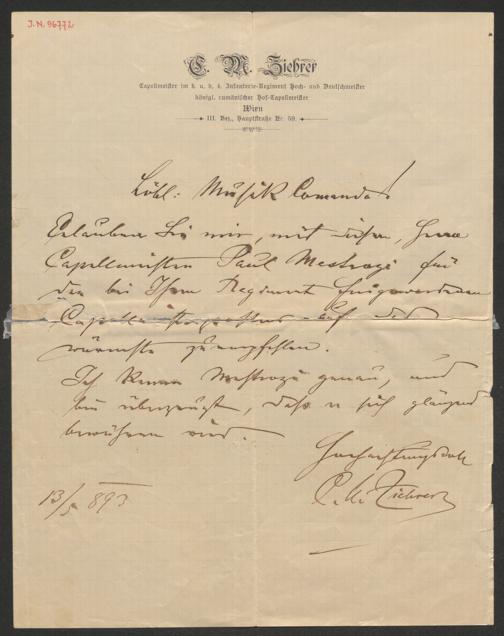 J.N. 96772
C. M. Ziehrer
Capellmeister im k. u. k. Infanterie-Regiment Hoch- und Deutschmeister
königl. rumänischer Hof-Capellmeister
Wien
III. Bez., Hauptstraße Nr. 59.
Löbl: Musik Comando!
Erlauben Sie mir, mit diesen, Herrn
Capellmeister Paul Mestrozi für
den bei Ihrem Regiment freigewordenen
Capellmeisterposten auf das
wärmste zu empfehlen.
Ich kenne Mestrozi genau, und
bin überzeugt, dass er sich glänzend
bewähren wird.
Hochachtungsvoll
C. M. Ziehrer
13/5 893